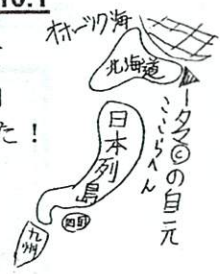 10.1
オホーツク海
北海道
ータス©の自元
ここらへん
た！
日本列島
四国
九州